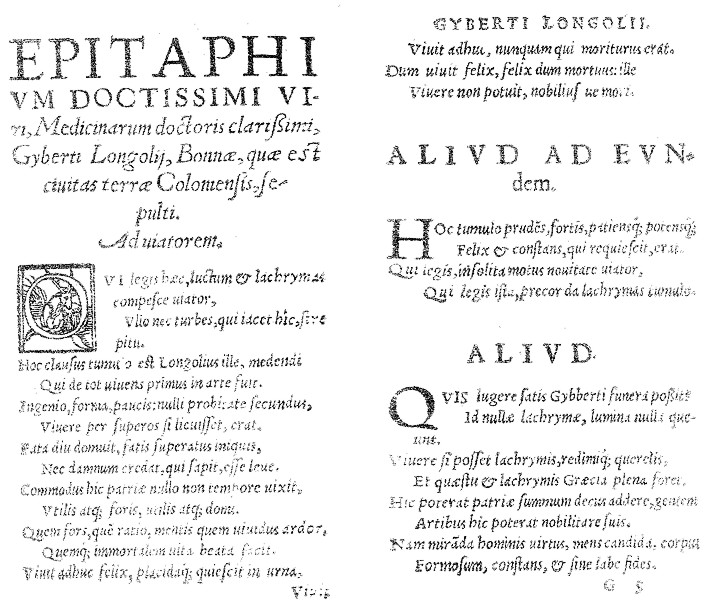 EPITAPHI
VM DOCTISSIMI VI-
ri, Medicinarum doctoris clarißimi,
Gyberti Longolij, Bonnæ, quæ est
ciuitas terræ Coloniensis, se-
pulti.
Ad uiatorem.
QVI legis hæc, luctum & lachrymas
compesce uiator,
Vllo nec turbes, qui iacet hîc, stre
pitu.
Hoc clausus tumulo est Longolius ille, medendi
Qui de tot uiuens primus in arte fuit.
Ingenio, forma, paucis: nulli probitate secundus,
Viuere per superos si licuisset, erat.
Fata diu domuit, fatis superatus iniquis,
Nec damnum credat, qui sapit, esse leue.
Commodus hic patriæ nullo non tempore uixit,
Vtilis atq; foris, utilis atq; domi.
Quem fors, quẽ ratio, mentis quem uiuidus ardor,
Quemq; immortalem uita beata facit.
Viuit adhuc felix, placidaq; quiescit in urna,
Viuit
GYBERTI LONGOLII.
Viuit adhuc, nunquàm qui moriturus erat.
Dum uiuit felix, felix dum mortuus: ille
Viuere non potuit, nobilius ue mori.
ALIVD AD EVN-
dem.
HOc tumulo prudẽs, fortis, patiensq; potensq;
Felix & constans, qui requiescit, erat.
Qui legis, insolita motus nouitate uiator,
Qui legis ista, precor da lachrymas tumulo.
ALIVD.
QVIS lugere satis Gybberti funera possit
Id nullæ lachrymæ, lumina nulla que-
unt.
Viuere si posset lachrymis, redimiq; querelis,
Et quæstu & lachrymis Græcia plena foret.
Hic poterat patriæ summum decus addere, gentem
Artibus hic poterat nobilitare suis.
Nam mirãda hominis uirtus, mens candida, corpus
Formosum, constans, & sine labe fides.
G 5